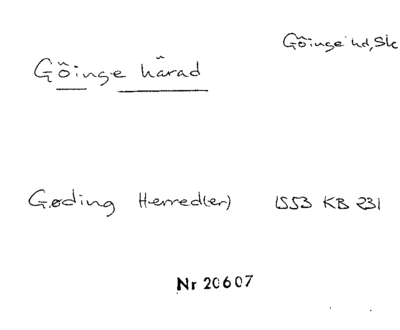 Göinge hd, Sk
Göinge härad
Gøding Herred(er) 1553 KB 231
Nr 20607